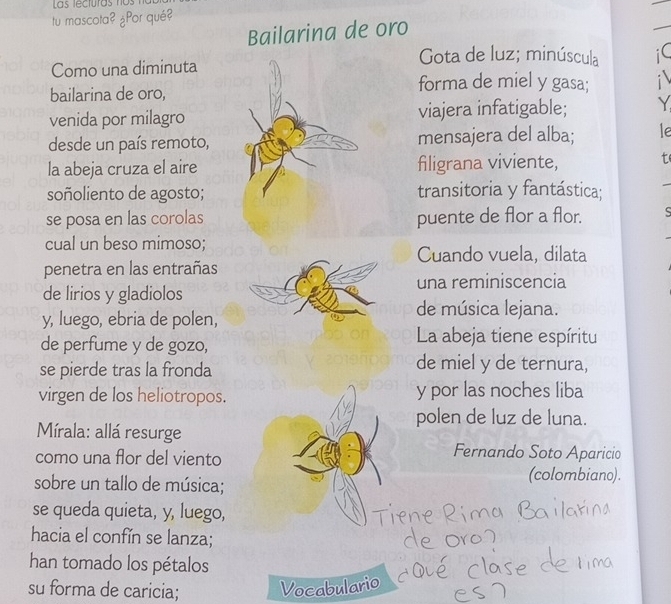 tu mascota? ¿Por qué?
Bailarina de oro
Como una diminuta
bailarina de oro,
venida por milagro
desde un país remoto,
la abeja cruza el aire
soñoliento de agosto;
se posa en las corolas
cual un beso mimoso;
penetra en las entrañas
de lirios y gladiolos
y, luego, ebria de polen,
de perfume y de gozo,
se pierde tras la fronda
virgen de los heliotropos.
Mírala: allá resurge
como una flor del viento
sobre un tallo de música;
se queda quieta, y, luego,
hacia el confín se lanza;
han tomado los pétalos
su forma de caricia;
Gota de luz; minúscula
forma de miel y gasa;
viajera infatigable;
mensajera del alba;
filigrana viviente,
transitoria y fantástica;
puente de flor a flor.
Cuando vuela, dilata
una reminiscencia
de música lejana.
La abeja tiene espíritu
de miel y de ternura,
y por las noches liba
polen de luz de luna.
Fernando Soto Aparicio
(colombiano).
Tiene Rima Bailarina
de oro?
¿Qué clase de rima
es?
Vocabulario